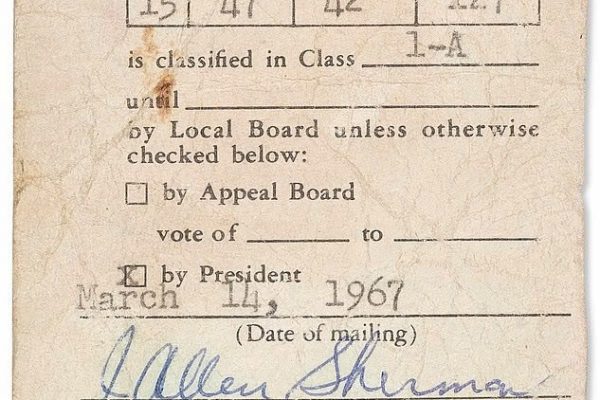 15 47 42 127
is classified in Class 1-A
until
by Local Board unless otherwise
checked below:
by Appeal Board
vote of to
X by President
March 14, 1967
(Date of mailing)
J Allen Sherman